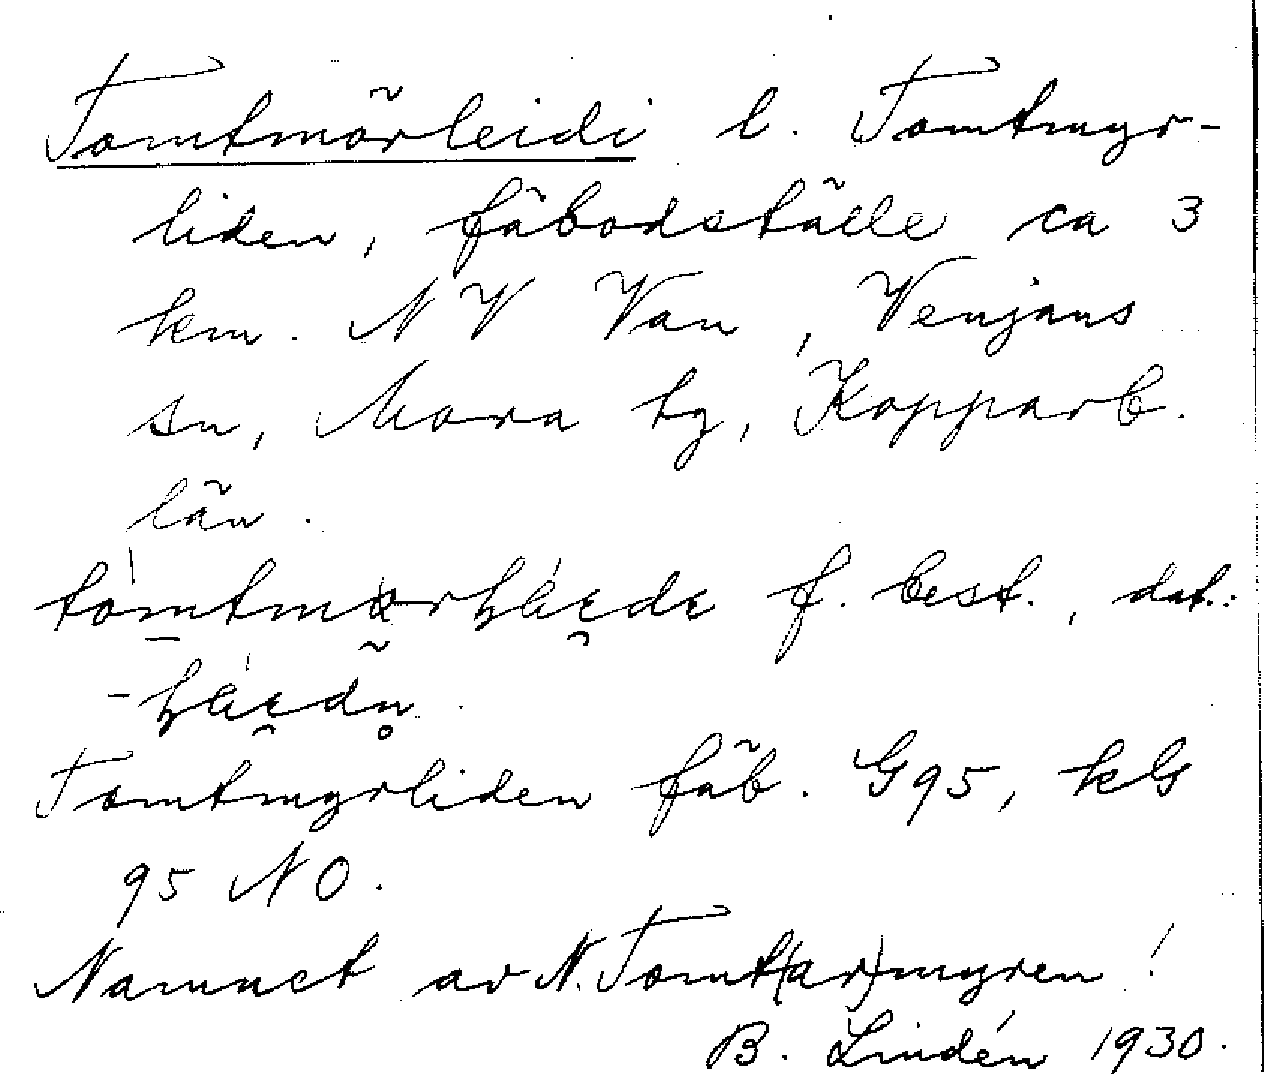 Tomtmörleidi l. Tomtmyr-
liden, fäbodställe ca 3
km. NV Van, Venjans
sn, Mora tg, Kopparb.
län.
f. best., dat.:
Tomtmyrliden fäb. G95, kG
95 NO.
Namnet av N. Tomt(ar)myren!
B. Lindén 1930.